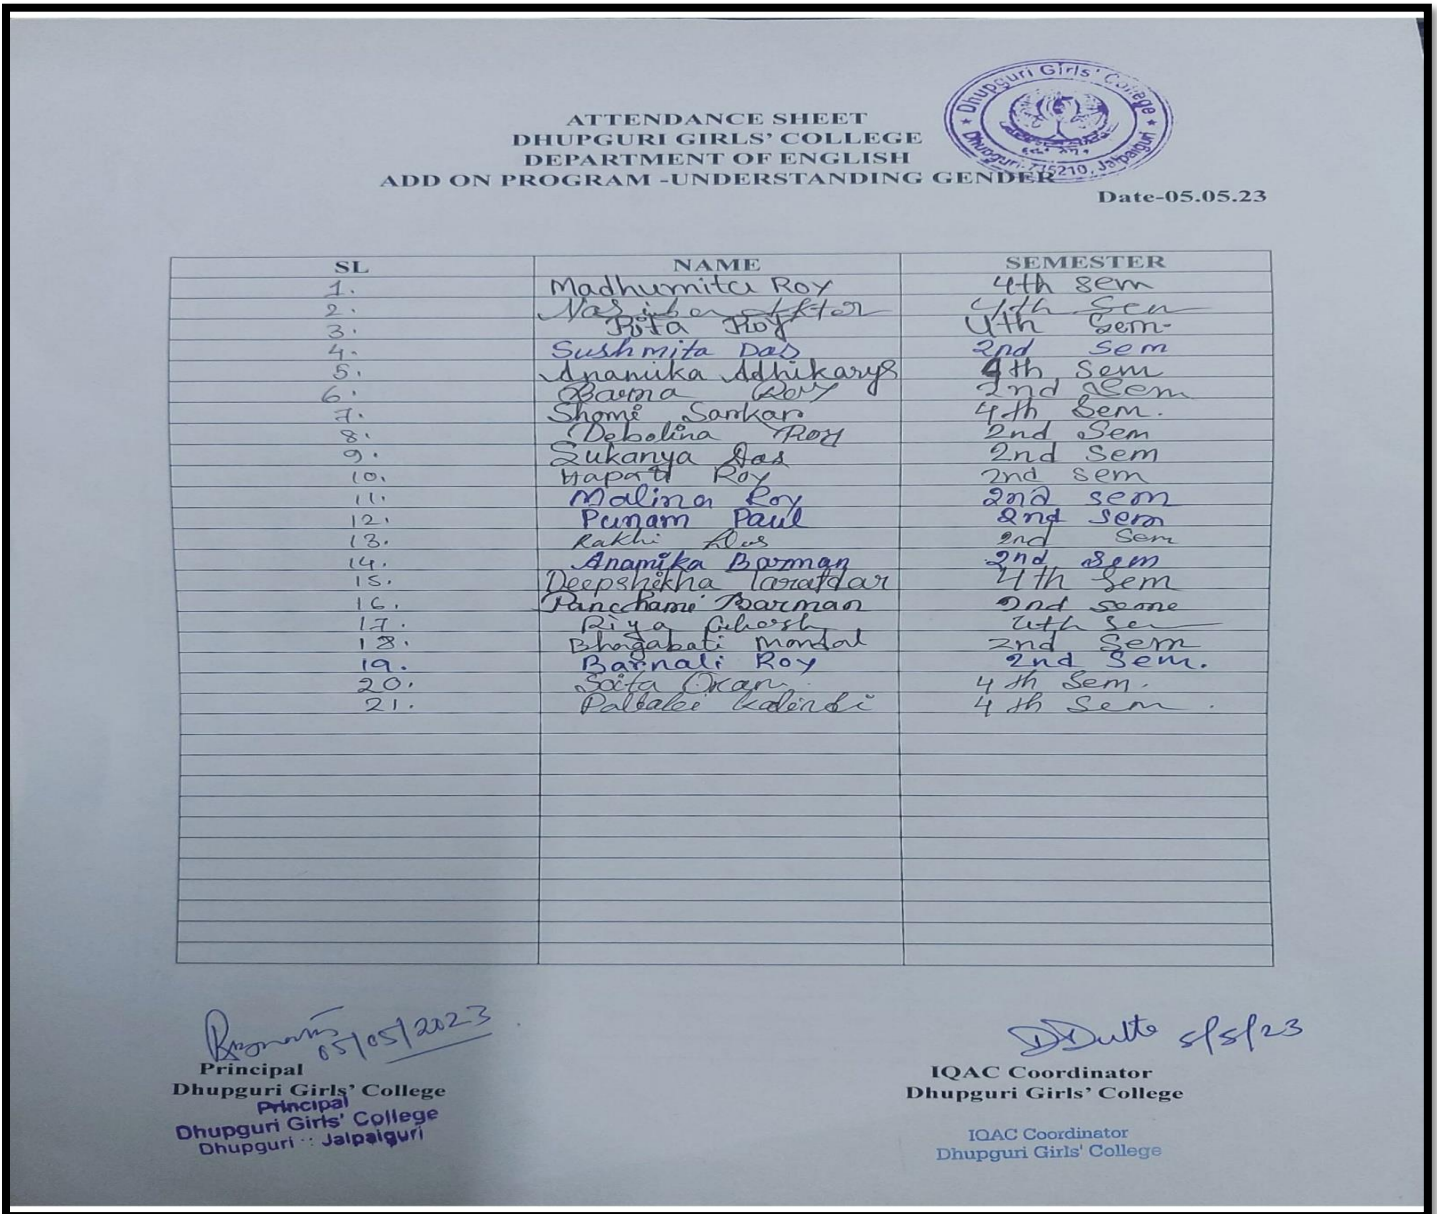 Dhupguri Girls' College
Dhupguri. 735210, Jalpaiguri
ATTENDANCE SHEET
DHUPGURI GIRLS' COLLEGE
DEPARTMENT OF ENGLISH
ADD ON PROGRAM -UNDERSTANDING GENDER
Date-05.05.23
SL NAME SEMESTER
1. Madhumita Roy 4th sem
2. 4th Sem
3. Rita Roy 4th Sem-
4. Sushmita Das 2nd Sem
5. Anamika Adhikary 4th Sem
6. Roy 2nd Sem
7. Shomi Sarkar 4th Sem.
8. Debolina Roy 2nd Sem
9. Sukanya Das 2nd Sem
10. Roy 2nd Sem
11. Malina Roy 2nd sem
12. Punam Paul 2nd Sem
13. Rakhi Das 2nd Sem
14. Anamika Barman 2nd Sem
15. Deepshikha Tarafdar 4th Sem
16. Panchami Barman 2nd seme
17. Riya Ghosh 4th Sem
18. Bhagabati Mondal 2nd Sem
19. Barnali Roy 2nd Sem.
20. 4th Sem.
21. Kalindi 4th Sem.
05/05/2023
DDutta 5/5/23
Principal
Dhupguri Girls' College
IQAC Coordinator
Dhupguri Girls' College
Principal
Dhupguri Girls' College
Dhupguri :: Jalpaiguri
IQAC Coordinator
Dhupguri Girls' College